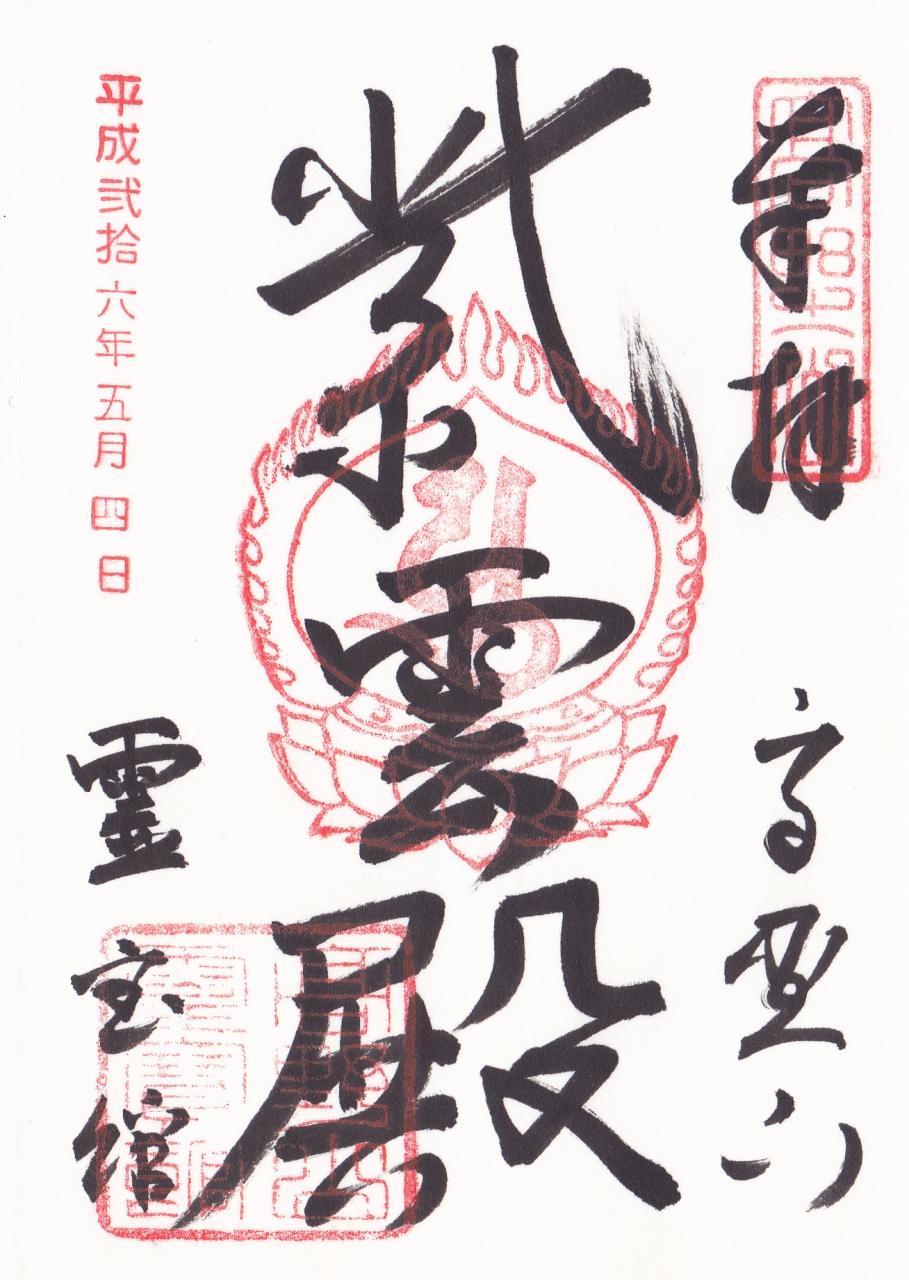 奉拝
高野山
紫雲殿
霊宝館
平成弐拾六年五月四日